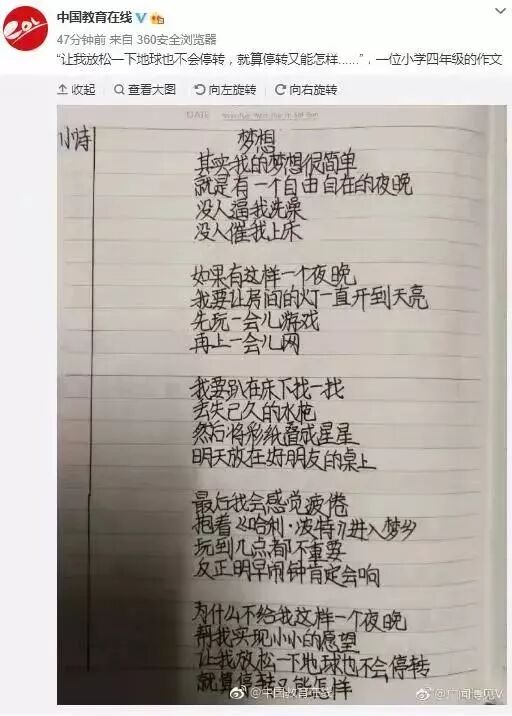 中国教育在线
47分钟前 来自 360安全浏览器
“让我放松一下地球也不会停转，就算停转又能怎样......”，一位小学四年级的作文
收起 查看大图 向左旋转 向右旋转
DATE
小诗
梦想
其实我的梦想很简单
就是有一个自由自在的夜晚
没人逼我洗澡
没人催我上床
如果有这样一个夜晚
我要让房间的灯一直开到天亮
先玩一会儿游戏
再上一会儿网
我要趴在床下找一找
丢失已久的水枪
然后将彩纸叠成星星
明天放在好朋友的桌上
最后我会感觉疲倦
抱着《哈利·波特》进入梦乡
玩到几点都不重要
反正明早闹钟肯定会响
为什么不给我这样一个夜晚
帮我实现小小的愿望
让我放松一下地球也不会停转
就算停转又能怎样
@中国教育在线
@广闻博见V